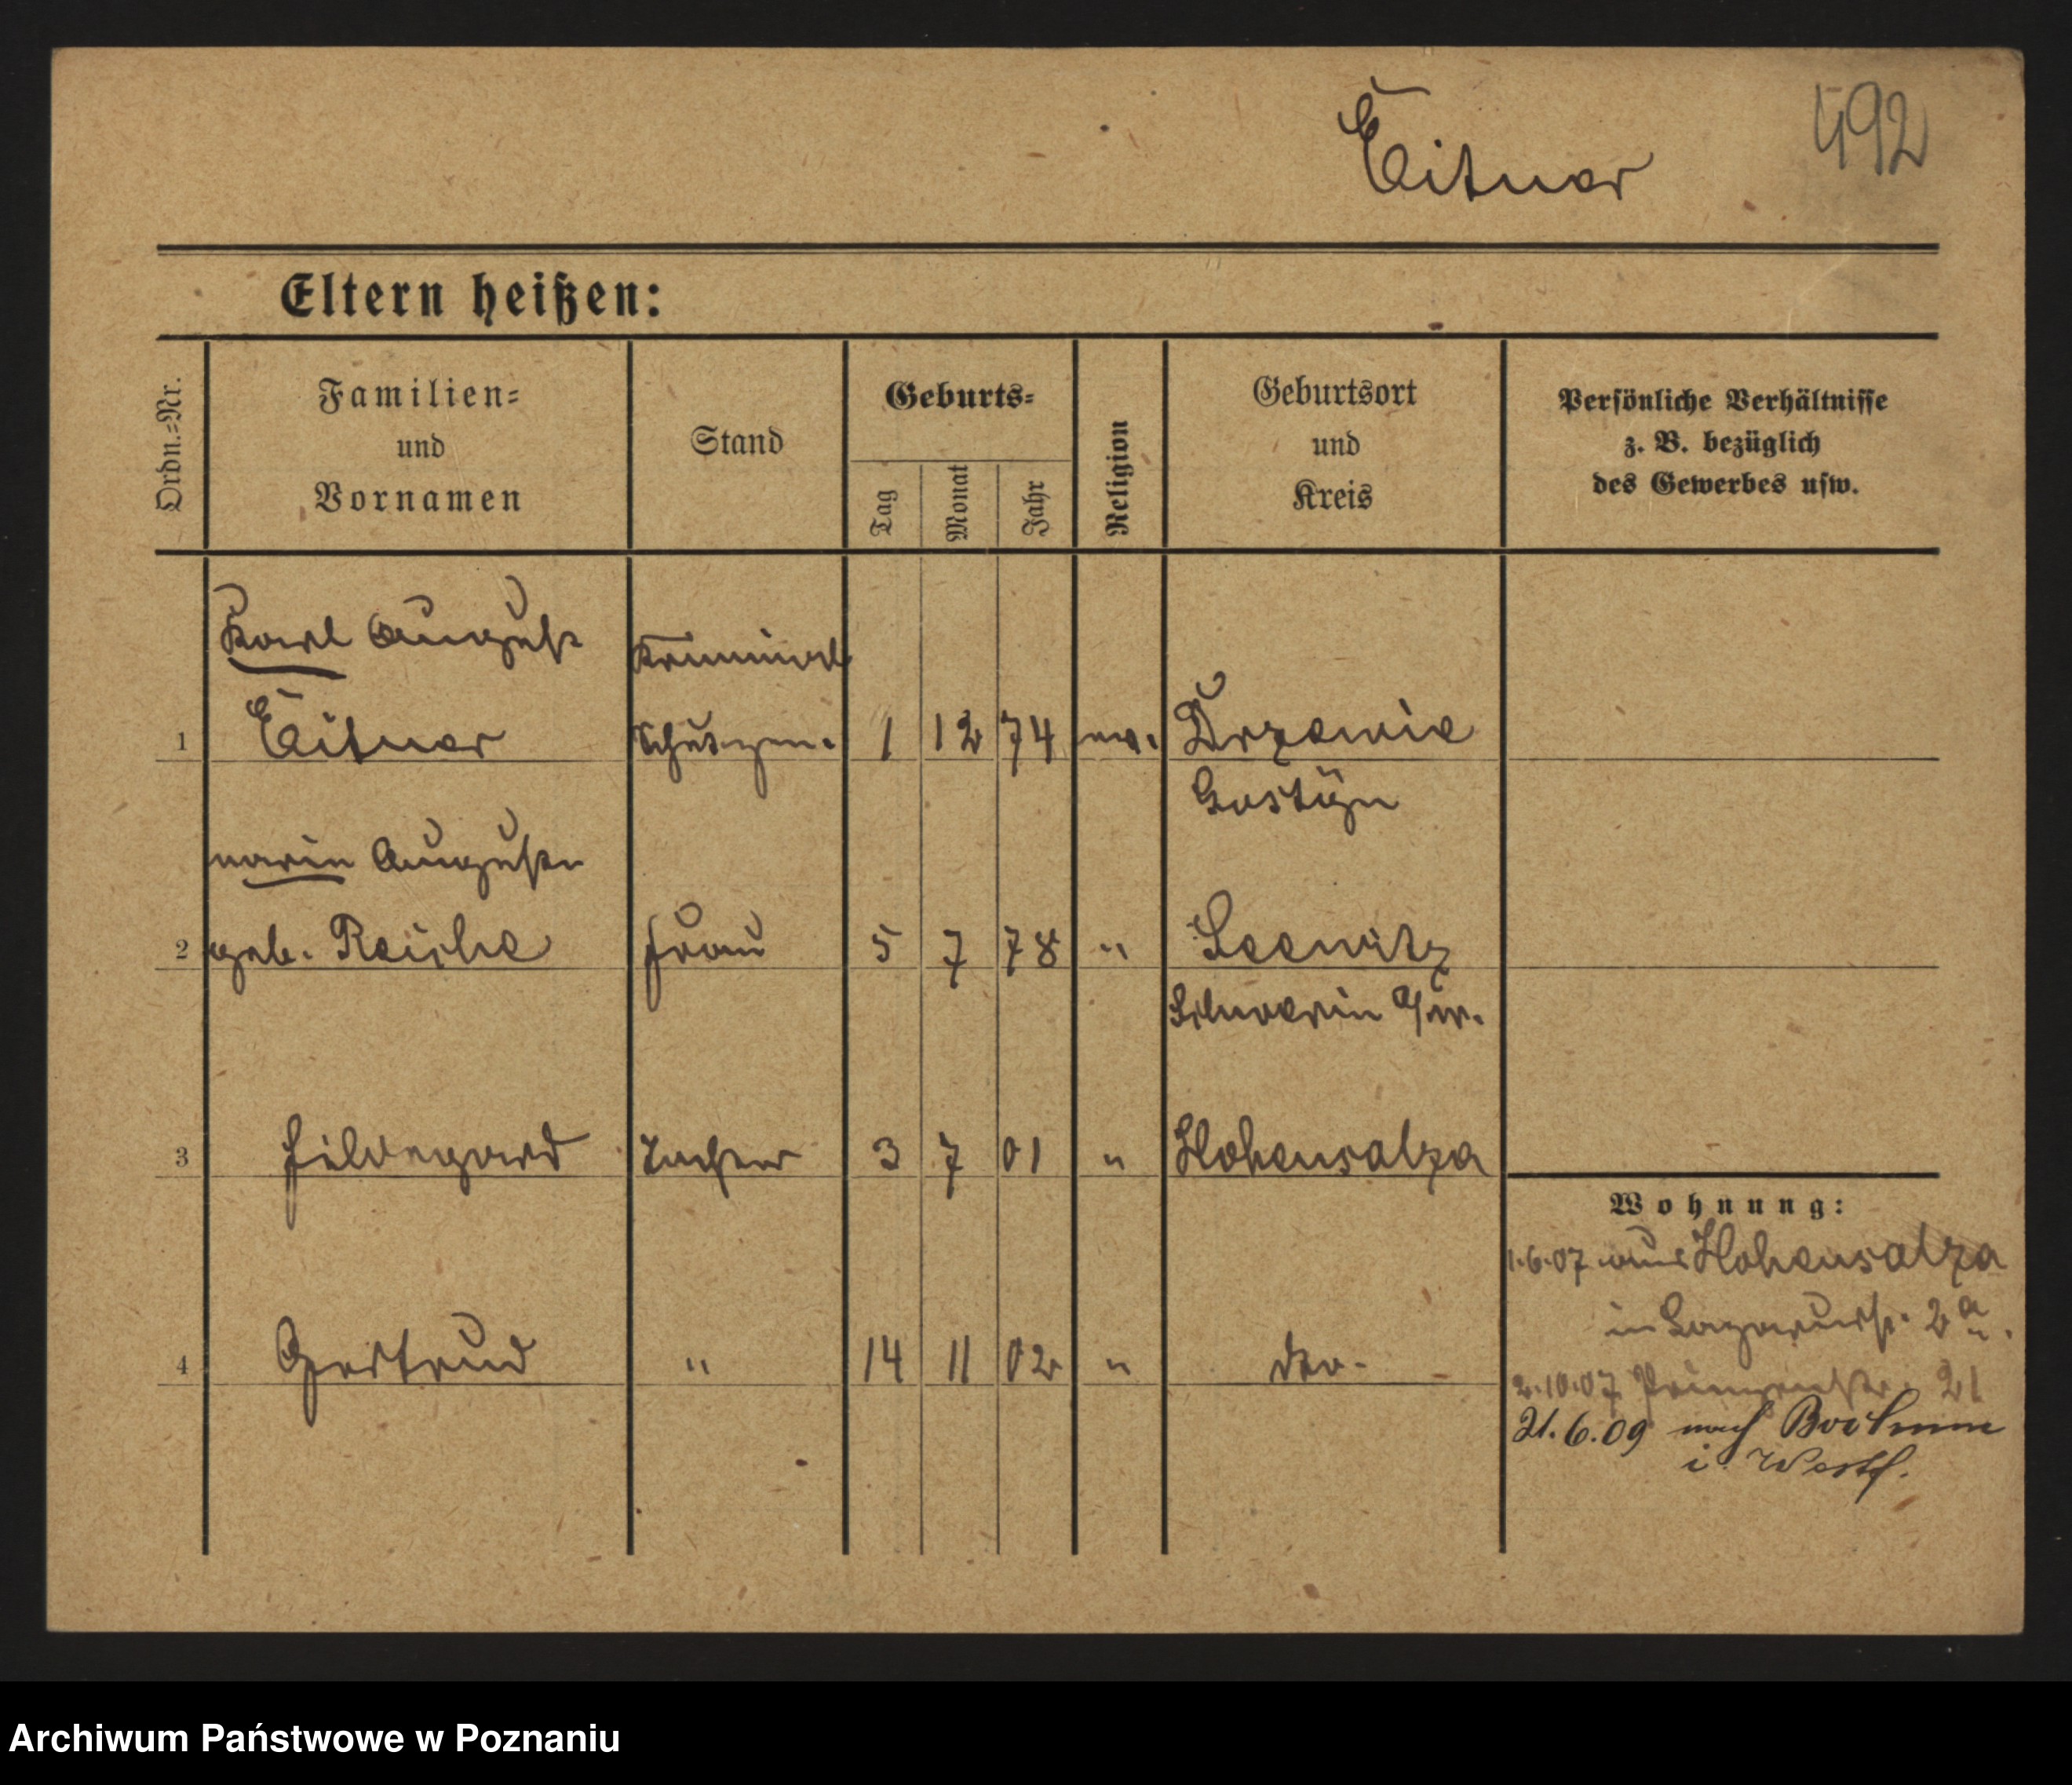 Eitner
492
Eltern heißen:
Ordn.-Nr.
Familien-
und
Vornamen
Stand
Geburts-
Tag
Monat
Jahr
Religion
Geburtsort
und
Kreis
Persönliche Verhältnisse
z. B. bezüglich
des Gewerbes usw.
Karl August
Kriminal
1 Eitner Schutzm. 1 12 74 ev. Drzewie
Gostÿn
Marie Auguste
2 geb. Reiche Frau 5 7 78 "
Schwerin a/W.
3 Hildegard Tochter 3 7 01 " Hohensalza
Wohnung:
1.6.07 aus Hohensalza
in Lazarusstr. 2a
4 Gertrud " 14 11 02 " dto.
2.10.07 Prinzenstr. 21
21.6.09 nach Bochum
i. Westf.
Archiwum Państwowe w Poznaniu